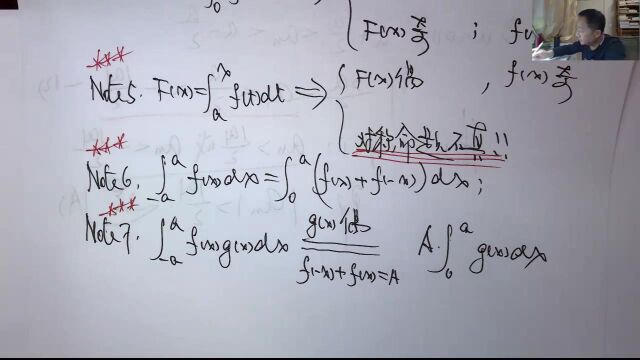 ∫₀
F(x)奇 ; f(
***
Note5. F(x)=∫ₐˣ f(t)dt ⟹ { F(x)偶 , f(x)奇
对称命题不正!!
***
Note6. ∫₋ₐᵃ f(x)dx = ∫₀ᵃ (f(x)+f(-x))dx;
***
Note7. ∫₋ₐᵃ f(x)g(x)dx =(g(x)偶 / f(-x)+f(x)=A)= A·∫₀ᵃ g(x)dx